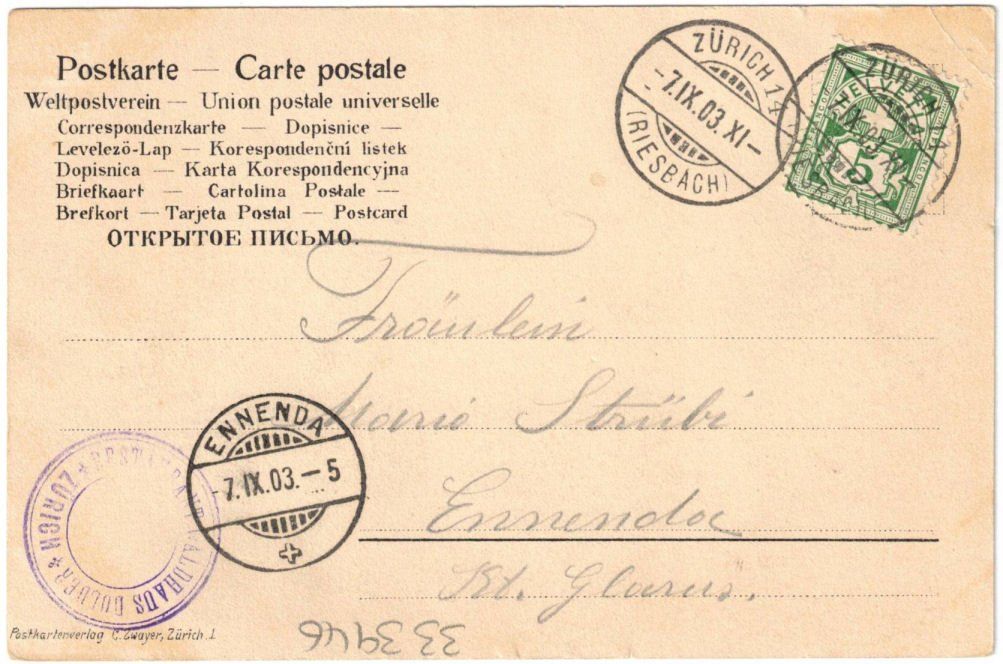 Postkarte — Carte postale
Weltpostverein — Union postale universelle
Correspondenzkarte — Dopisnice —
Levelezö-Lap — Korespondenční listek
Dopisnica — Karta Korespondencyjna
Briefkaart — Cartolina Postale —
Brefkort — Tarjeta Postal — Postcard
ОТКРЫТОЕ ПИСЬМО.
ZÜRICH 14
-7.IX.03.XI-
(RIESBACH)
HELVETIA
5
Fräulein
Marie Strübi
Ennenda
Kt. Glarus.
ENNENDA
-7.IX.03.-5
RESTAURANT WALDHAUS DOLDER * ZÜRICH *
Postkartenverlag C. Zwayer, Zürich. 1
333946